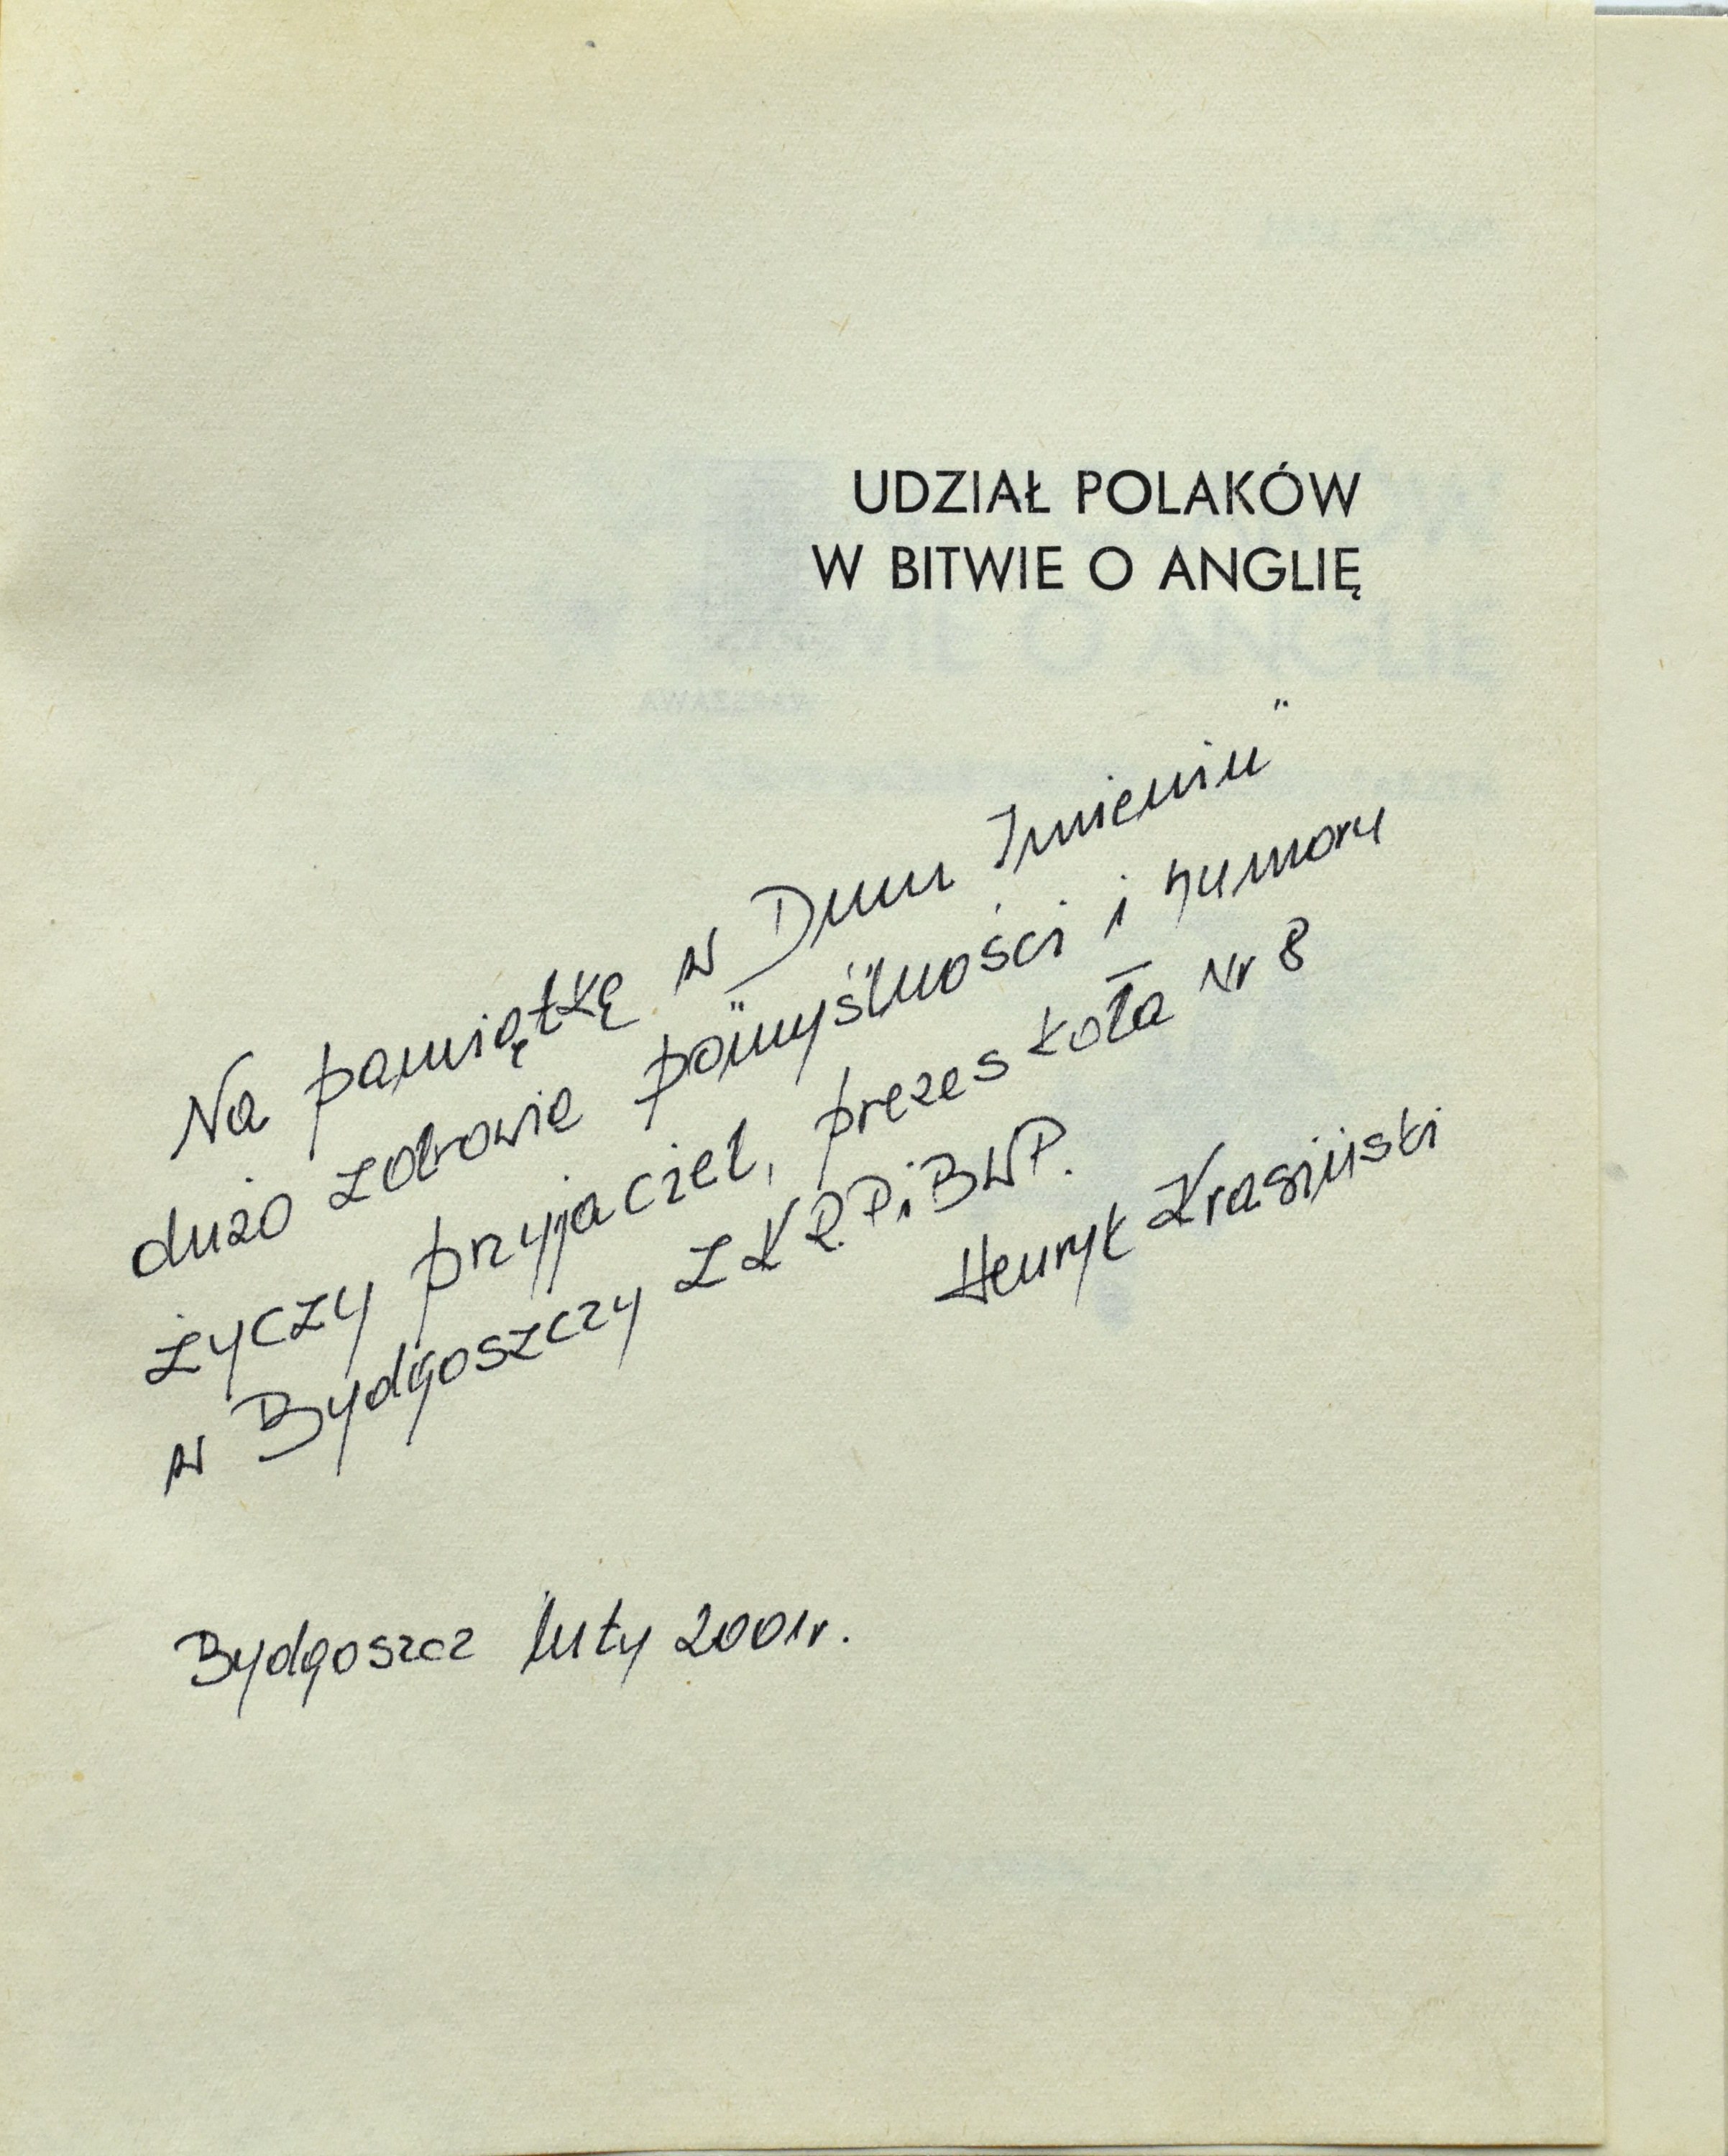 UDZIAŁ POLAKÓW
W BITWIE O ANGLIĘ
Na pamiątkę w Dniu Imienin"
dużo zdrowia pomyślności i humoru
życzy przyjaciel, prezes koła Nr 8
w Bydgoszczy Z K R.P.i B.W.P.
Henryk Krasiński
Bydgoszcz luty 2001r.
WARSZAWA